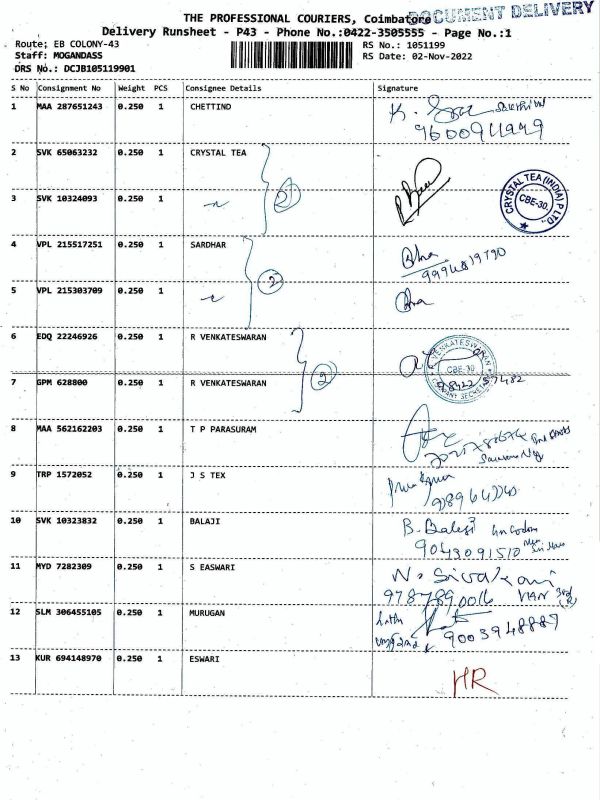 THE PROFESSIONAL COURIERS, Coimbatore
DOCUMENT DELIVERY
Delivery Runsheet - P43 - Phone No.:0422-3505555 - Page No.:1
Route: EB COLONY-43
RS No.: 1051199
Staff: MOGANDASS
RS Date: 02-Nov-2022
DRS No.: DCJB105119901
S No Consignment No Weight PCS Consignee Details Signature
1 MAA 287651243 0.250 1 CHETTIND
2 SVK 65063232 0.250 1 CRYSTAL TEA
2
CRYSTAL TEA (INDIA) P LTD.,
CBE-30
3 SVK 10324093 0.250 1
4 VPL 215517251 0.250 1 SARDHAR
2
5 VPL 215303709 0.250 1
6 EDQ 22246926 0.250 1 R VENKATESWARAN
R VENKATESWARAN
CBE-30
COMPANY SECRETARY
2
98422 57482
7 GPM 628800 0.250 1 R VENKATESWARAN
8 MAA 562162203 0.250 1 T P PARASURAM
9 TRP 1572052 0.250 1 J S TEX
10 SVK 10323832 0.250 1 BALAJI
B. Balaji
9043091510
11 MYD 7282309 0.250 1 S EASWARI
N. Sivakani
9787890016
12 SLM 306455105 0.250 1 MURUGAN
9003948889
13 KUR 694148970 0.250 1 ESWARI
HR